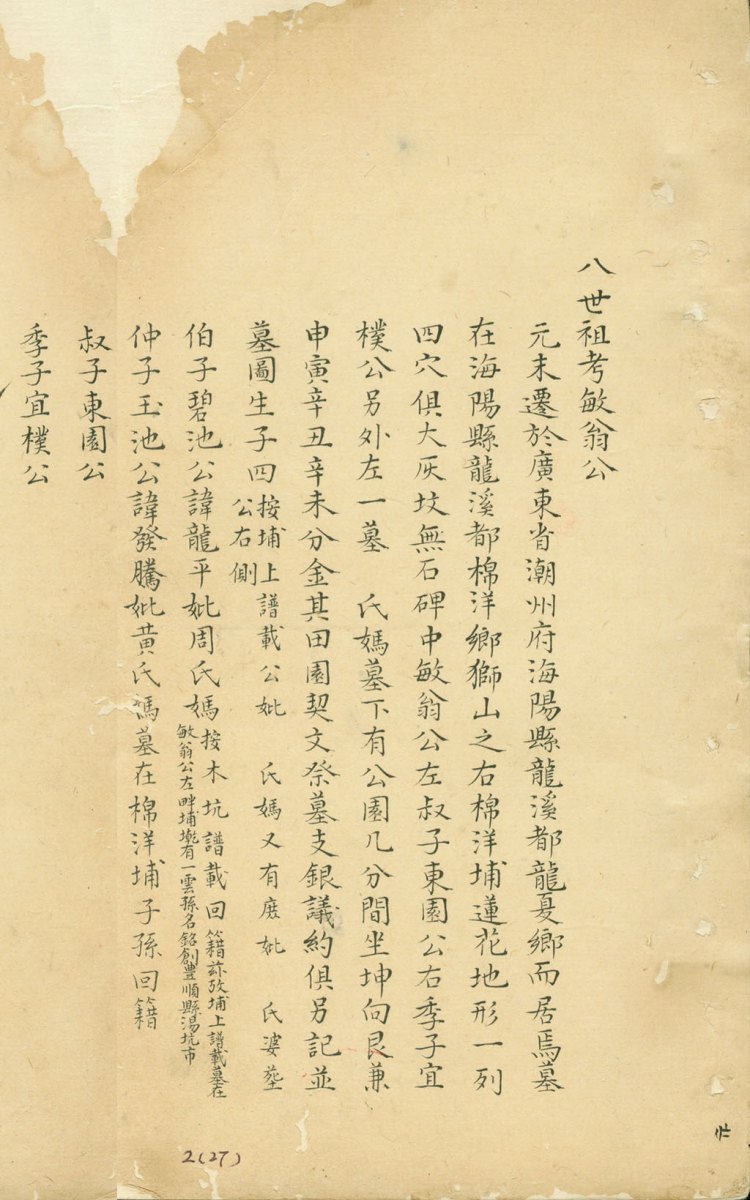 八世祖考敏翁公
元末遷於廣東省潮州府海陽縣龍溪都龍憂鄉而居焉墓
在海陽縣龍溪都棉洋鄉獅山之右棉洋埔蓮花地形一列
四穴俱大灰坟無石碑中敏翁公左叔子東園公右季子宜
樸公另外左一墓　氏媽墓下有公園几分間坐坤向艮兼
申寅辛丑辛未分金其田園契文祭墓支銀議約俱另記並
墓圖生子四按埔上譜載公妣　氏媽又有庶妣　氏婆塟
公右側
伯子碧池公諱龍平妣周氏媽按木坑譜載回籍茲攷埔上譜載墓在
敏翁公左畔埔墘有一雲孫名銘創豊順縣湯坑市
仲子玉池公諱發騰妣黃氏媽墓在棉洋埔子孫回籍
叔子東園公
季子宜樸公
2(27)